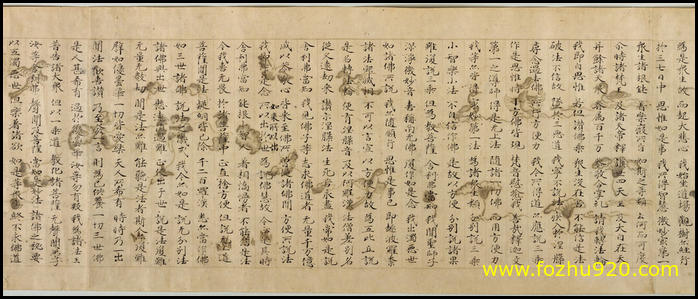 為是眾生故 而起大悲心 我始坐道場 觀樹亦經行
於三七日中 思惟如是事 我所得智慧 微妙最第一
眾生諸根鈍 著樂癡所盲 如斯之等類 云何而可度
尒時諸梵王 及諸天帝釋 護世四天王 及大自在天
并餘諸天眾 眷屬百千萬 恭敬合掌礼 請我轉法輪
我即自思惟 若但讚佛乘 眾生沒在苦 不能信是法
破法不信故 墜於三惡道 我寧不說法 疾入於涅槃
尋念過去佛 所行方便力 我今所得道 亦應說三乘
作是思惟時 十方佛皆現 梵音慰喻我 善哉釋迦文
第一之導師 得是無上法 隨諸一切佛 而用方便力
我等亦皆得 最妙第一法 為諸眾生類 分別說三乘
小智樂小法 不自信作佛 是故以方便 分別說諸果
雖復說三乘 但為教菩薩 舍利弗當知 我聞聖師子
深淨微妙音 喜稱南無佛 復作如是念 我出濁惡世
如諸佛所說 我亦隨順行 思惟是事已 即趣波羅柰
諸法寂滅相 不可以言宣 以方便力故 為五比丘說
是名轉法輪 便有涅槃音 及以阿羅漢 法僧差別名
從久遠劫來 讚示涅槃法 生死苦永盡 我常如是說
舍利弗當知 我見佛子等 志求佛道者 無量千萬億
咸以恭敬心 皆來至佛所 曾從諸佛聞 方便所說法
我即作是念 如來所以出 為說佛慧故 今正是時
舍利弗當知 鈍根小智人 著相憍慢者 不能信是法
今我喜無畏 於諸菩薩中 正直捨方便 但說無上道
菩薩聞是法 疑網皆已除 千二百羅漢 悉亦當作佛
如三世諸佛 說法之儀式 我今亦如是 說無分別法
諸佛興出世 懸遠值遇難 正使出于世 說是法復難
無量無數劫 聞是法亦難 能聽是法者 斯人亦復難
譬如優曇華 一切皆愛樂 天人所希有 時時乃一出
聞法歡喜讚 乃至發一言 則為已供養 一切三世佛
是人甚希有 過於優曇華 汝等勿有疑 我為諸法王
普告諸大眾 但以一乘道 教化諸菩薩 無聲聞弟子
汝等舍利弗 聲聞及菩薩 當知是妙法 諸佛之秘要
以五濁惡世 但樂著諸欲 如是等眾生 終不求佛道
www.fozhu920.com